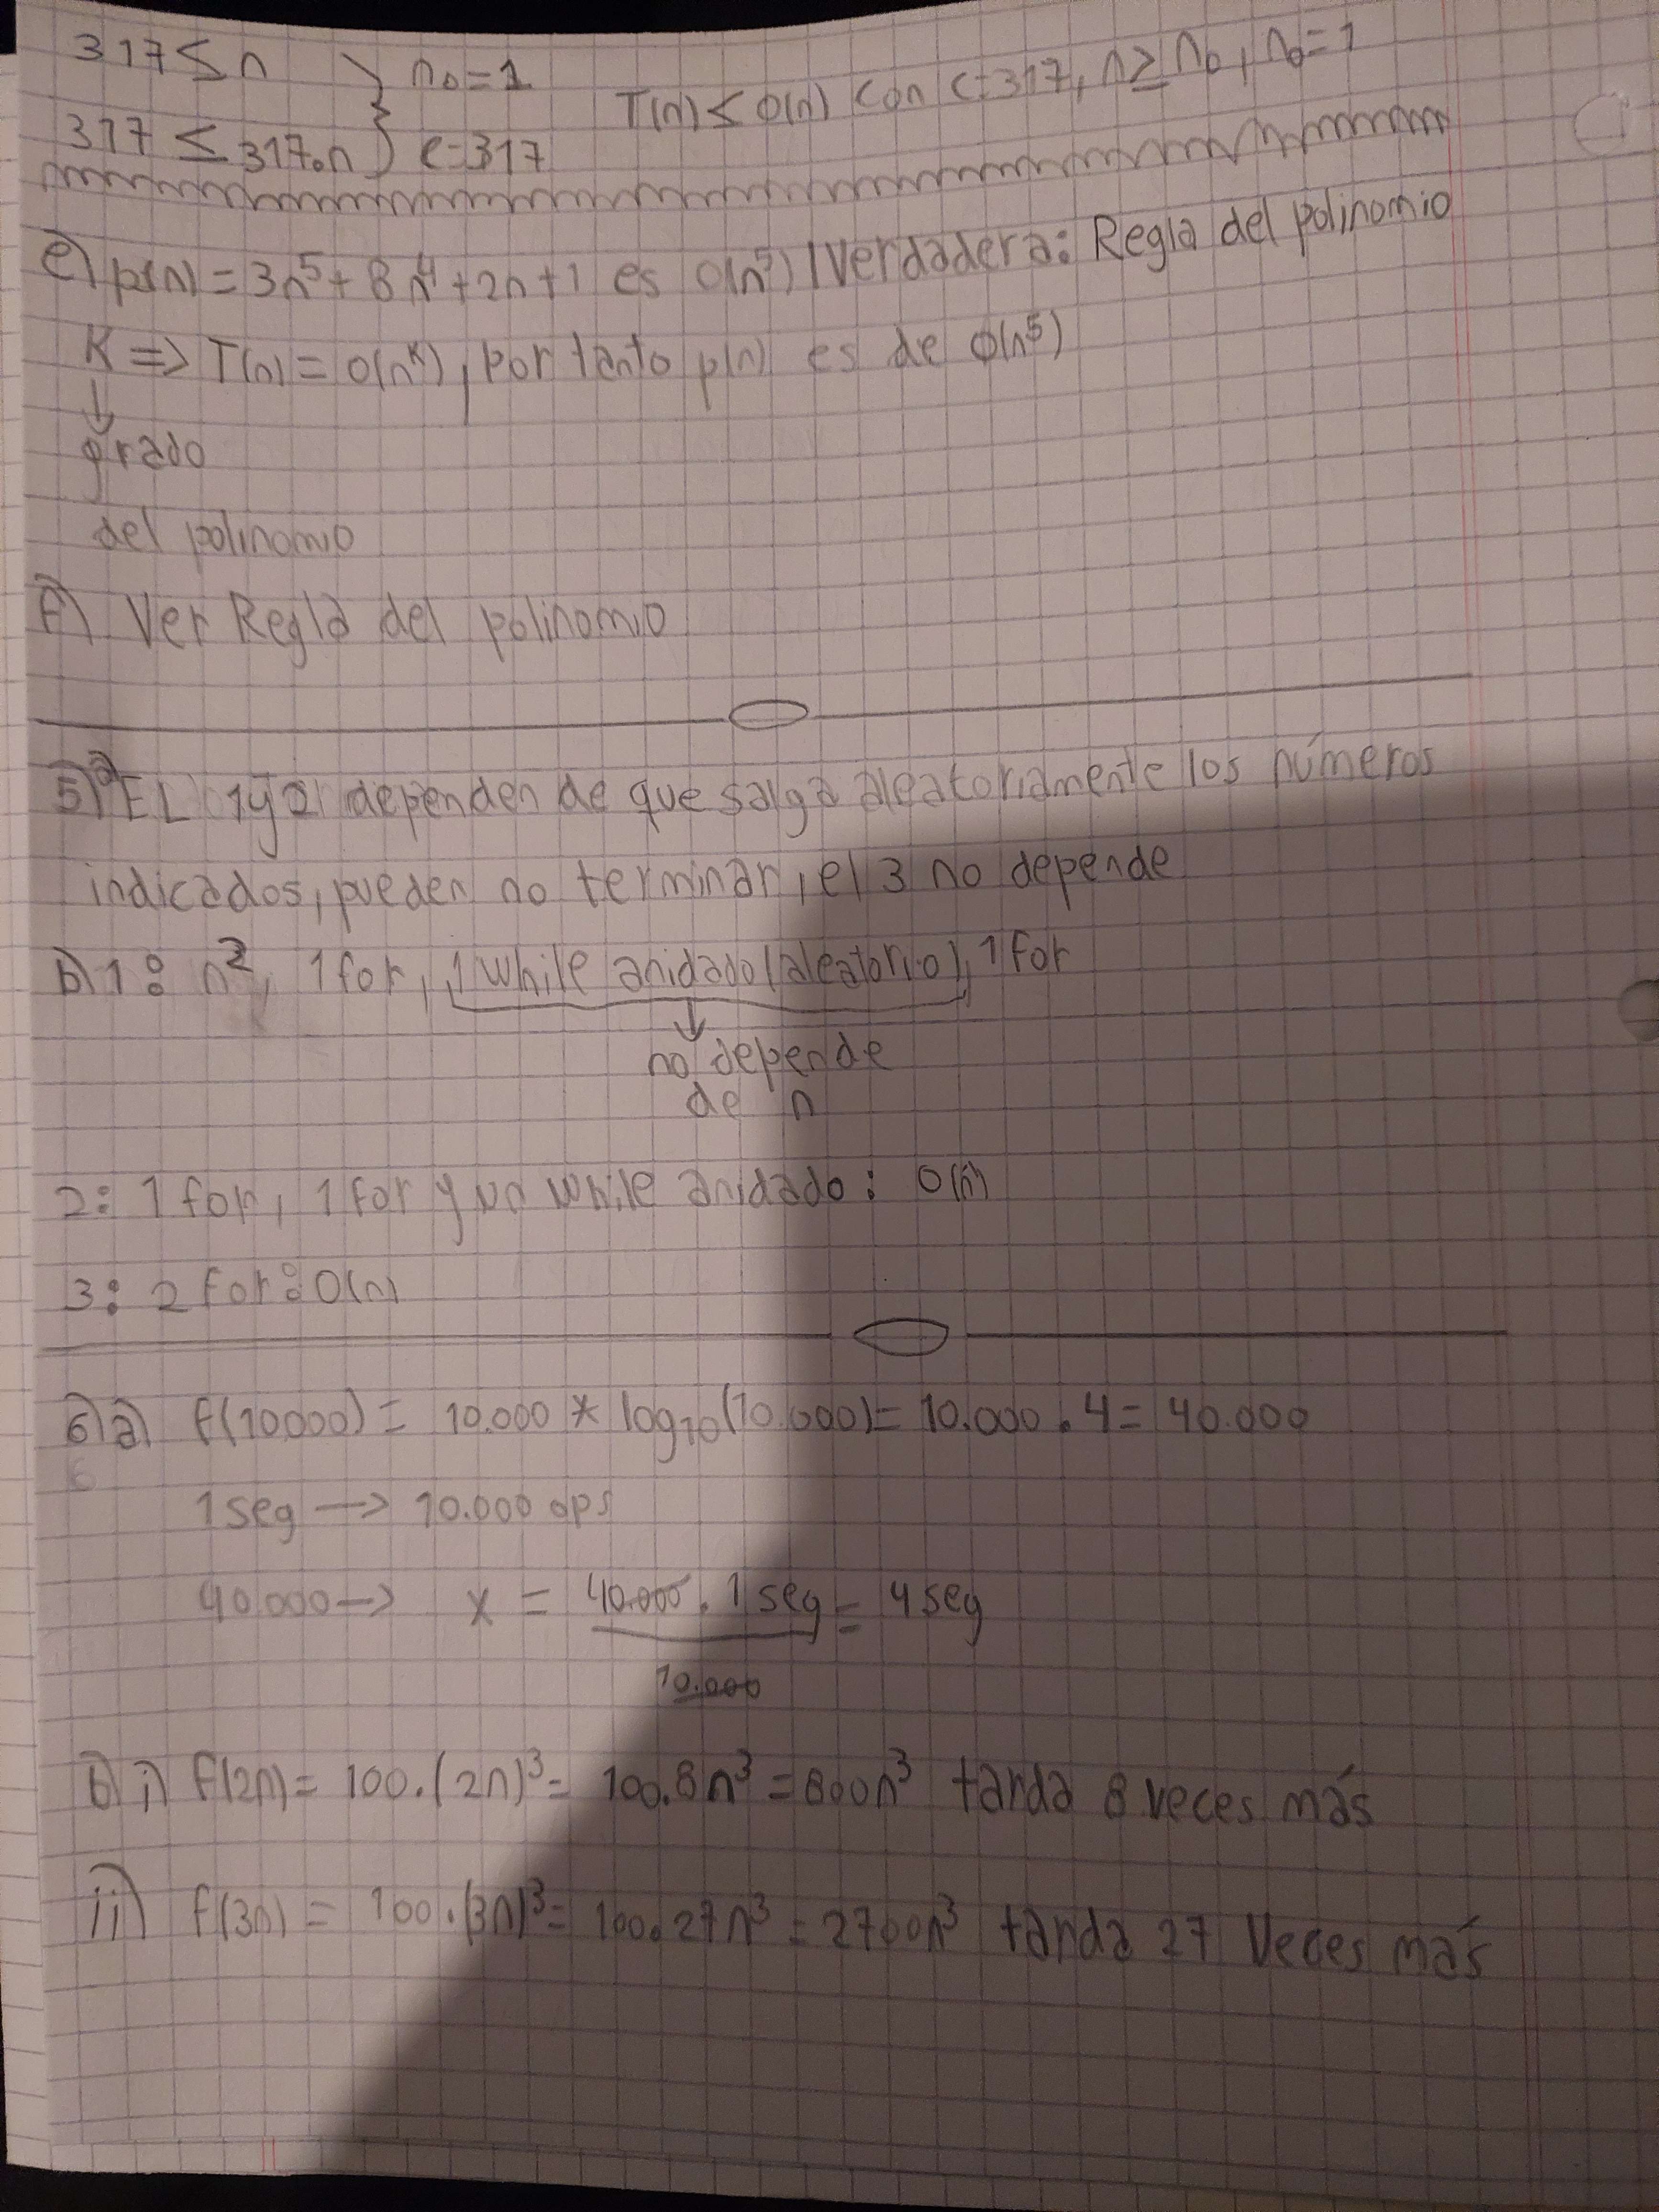 317 ≤ n } n₀ = 1 T(n) ≤ O(n) con c=317, n ≥ n₀, n₀=1
317 ≤ 317.n } c=317
e) p(n) = 3n⁵ + 8n⁴ + 2n + 1 es O(n⁵) / Verdadera: Regla del polinomio
K => T(n) = O(nᴷ), por tanto p(n) es de O(n⁵)
↓
grado
del polinomio
f) Ver Regla del polinomio
5) a) EL 1 y 2 dependen de que salga aleatoriamente los números
indicados, pueden no terminar, el 3 no depende
b) 1: n², 1 for, 1 while anidado (aleatorio), 1 for
↓
no depende
de n
2: 1 for, 1 for y un while anidado: O(n)
3: 2 for: O(n)
6) a) f(10.000) = 10.000 * log₁₀(10.000) = 10.000 . 4 = 40.000
1 seg → 10.000 ops
40.000 → x = 40.000 . 1 seg = 4 seg
10.000
b) i) f(2n) = 100.(2n)³ = 100.8n³ = 800n³ tarda 8 veces más
ii) f(3n) = 100.(3n)³ = 100.27n³ = 2700n³ tarda 27 veces más